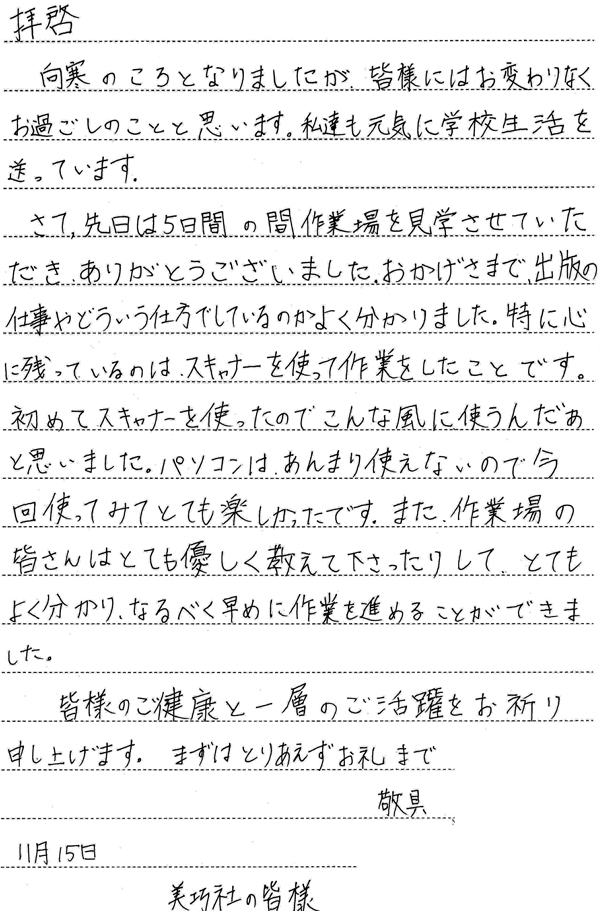 拝啓
向寒のころとなりましたが、皆様にはお変わりなく
お過ごしのことと思います。私達も元気に学校生活を
送っています。
さて、先日は5日間の間作業場を見学させていた
だき、ありがとうございました。おかげさまで、出版の
仕事やどういう仕方でしているのかよく分かりました。特に心
に残っているのは、スキャナーを使って作業をしたことです。
初めてスキャナーを使ったのでこんな風に使うんだぁ
と思いました。パソコンは、あんまり使えないので今
回使ってみてとても楽しかったです。また、作業場の
皆さんはとても優しく教えて下さったりして、とても
よく分かり、なるべく早めに作業を進めることができま
した。
皆様のご健康と一層のご活躍をお祈り
申し上げます。まずはとりあえずお礼まで
敬具
11月15日
美巧社の皆様